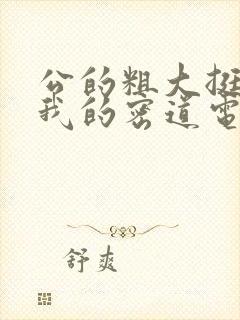 公的粗大挺
我的密道电
舒爽